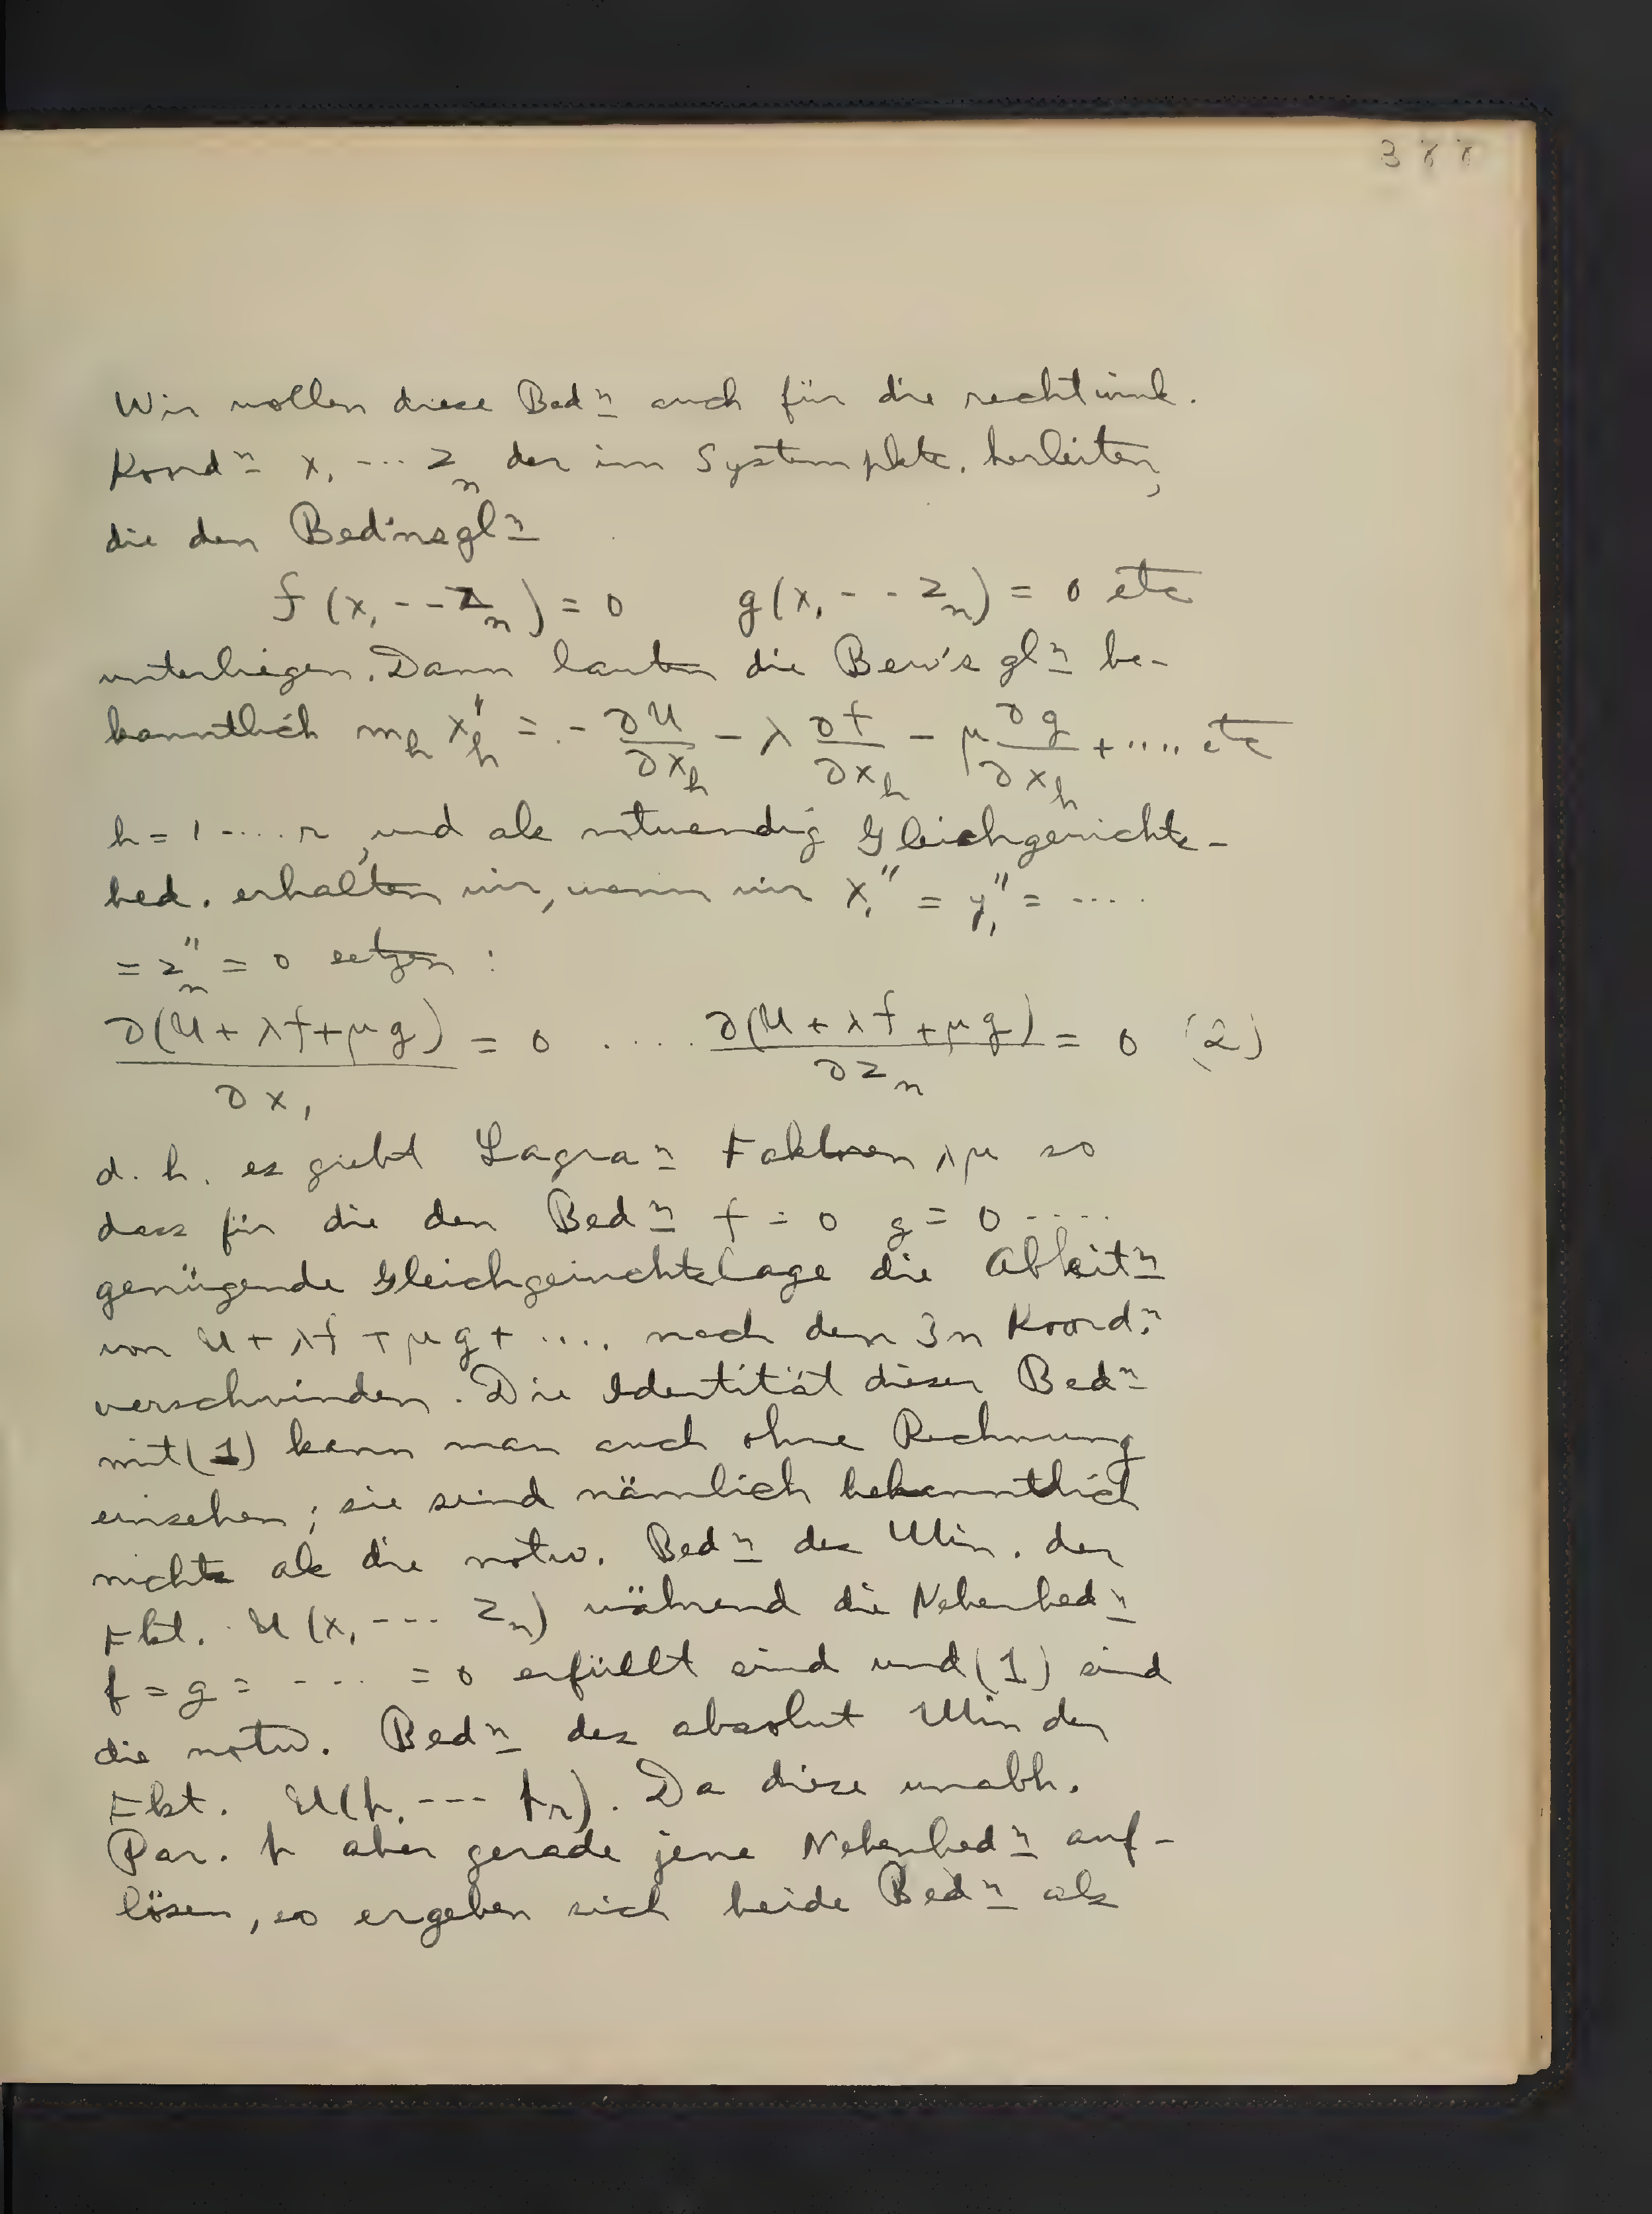 388
Wir wollen diese Bedn auch für die rechtwink.
Koordn x1 --- zn der im Systempkte. herleiten,
die den Bed'nsgln
f(x1 -- zn) = 0 g(x1 - - zn) = 0 etc
unterliegen. Dann lauten die Bew's gln be-
kanntlich mh x''h = - ∂U/∂xh - λ ∂f/∂xh - μ ∂g/∂xh + ..... etc
h = 1 ..... n, und als notwendig Gleichgewichts-
bed. erhalten wir, wenn wir x1'' = y1'' = ....
= zn'' = 0 setzen :
∂(U + λf + μg)/∂x1 = 0 ..... ∂(U + λf + μg)/∂zn = 0 (2)
d. h. es giebt Lagran Faktoren λμ so
dass für die den Bedn f = 0 g = 0 .....
genügende Gleichgewichtslage die Ableitn
von U + λf + μg + .... nach den 3n Koordn
verschwinden. Die Identität dieser Bedn
mit (1) kann man auch ohne Rechnung
einsehen; sie sind nämlich bekanntlich
nichts als die notw. Bedn des Min. der
Fkt. U(x1 --- zn) während die Nebenbedn
f = g = - ... = 0 erfüllt sind und (1) sind
die notw. Bedn des absolut Min der
Fkt. U(p1 --- pr). Da diese unabh.
Par. p aber gerade jene Nebenbedn auf-
lösen, so ergeben sich beide Bedn als